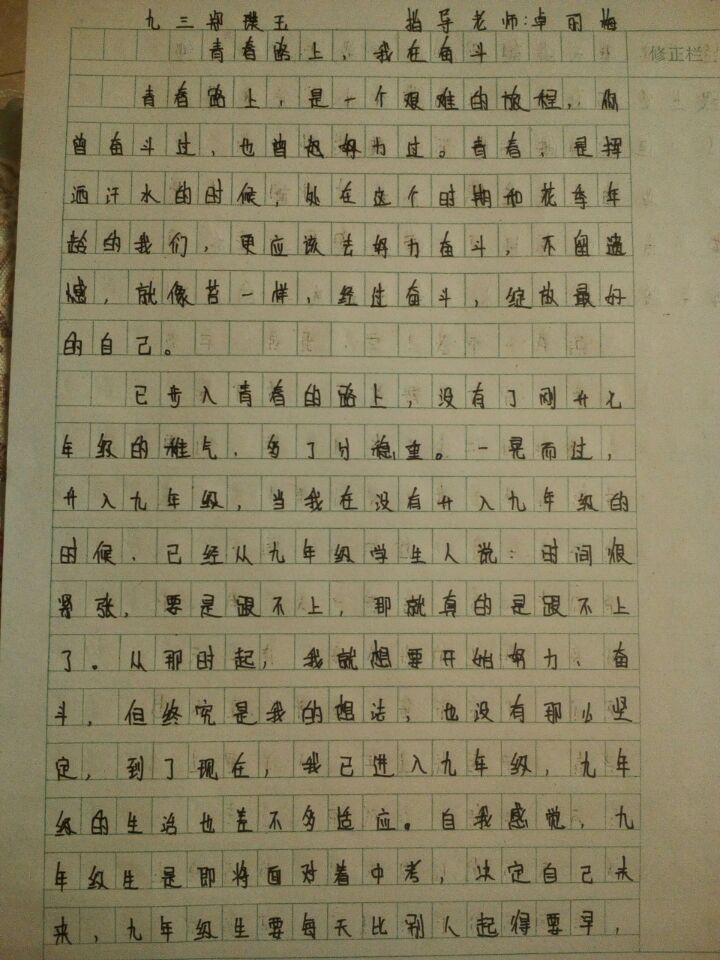 九三郑璞玉 指导老师:卓丽梅
青春路上，我在奋斗
修正栏
青春路上，是一个艰难的旅程，你
曾奋斗过，也曾努力过。青春，是挥
洒汗水的时候，处在这个时期和花季年
龄的我们，更应该去努力奋斗，不留遗
憾，就像苔一样，经过奋斗，绽放最好
的自己。
已步入青春的路上，没有了刚升七
年级的稚气，多了分稳重。一晃而过，
升入九年级，当我在没有升入九年级的
时候，已经从九年级学生人说：时间很
紧张，要是跟不上，那就真的是跟不上
了。从那时起，我就想要开始努力、奋
斗，但终究是我的想法，也没有那么坚
定，到了现在，我已进入九年级，九年
级的生活也差不多适应。自我感觉，九
年级生是即将面对着中考，决定自己未
来，九年级生要每天比别人起得要早，